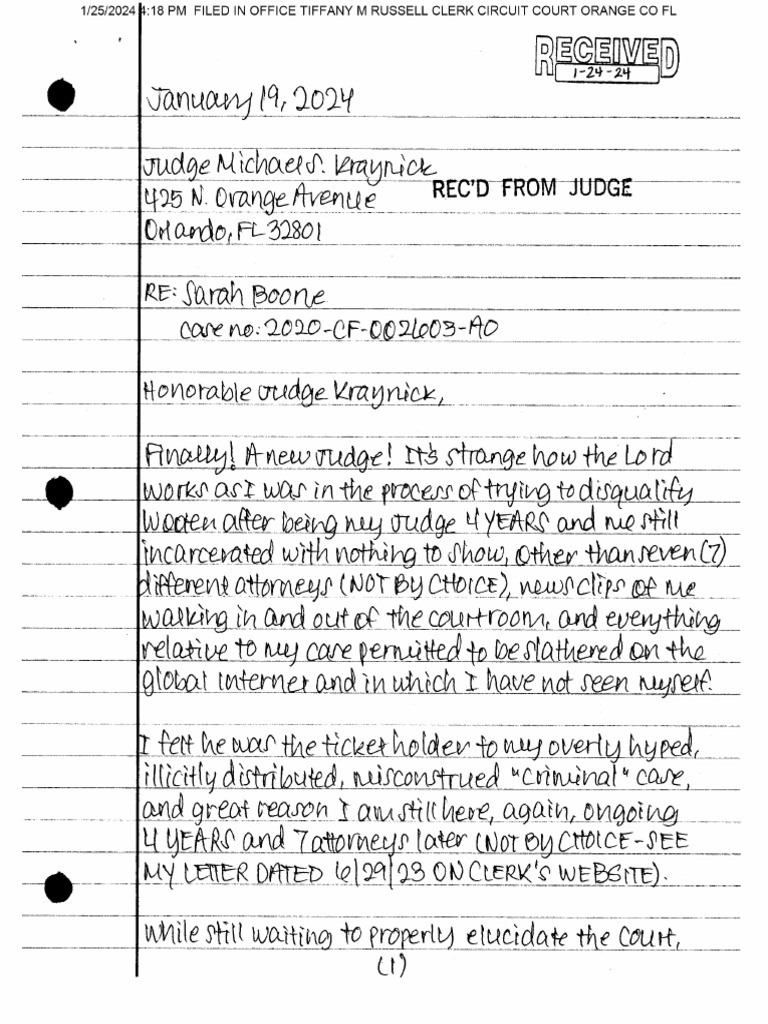 1/25/2024 4:18 PM FILED IN OFFICE TIFFANY M RUSSELL CLERK CIRCUIT COURT ORANGE CO FL
RECEIVED
1-24-24
January 19, 2024
Judge Michael S. Kraynick
REC'D FROM JUDGE
425 N. Orange Avenue
Orlando, FL 32801
RE: Sarah Boone
case no: 2020-CF-002603-AO
Honorable Judge Kraynick,
Finally! A new Judge! It's strange how the Lord
works as I was in the process of trying to disqualify
Wooten after being my Judge 4 YEARS and me still
incarcerated with nothing to show, other than seven (7)
different attorneys (NOT BY CHOICE), news clips of me
walking in and out of the courtroom, and everything
relative to my case permitted to be slathered on the
global internet and in which I have not seen myself.
I felt he was the ticket holder to my overly hyped,
illicitly distributed, misconstrued "criminal" case,
and great reason I am still here, again, ongoing
4 YEARS and 7 attorneys later (NOT BY CHOICE-SEE
MY LETTER DATED 6/29/23 ON CLERK'S WEBSITE).
While still waiting to properly elucidate the Court,
(1)